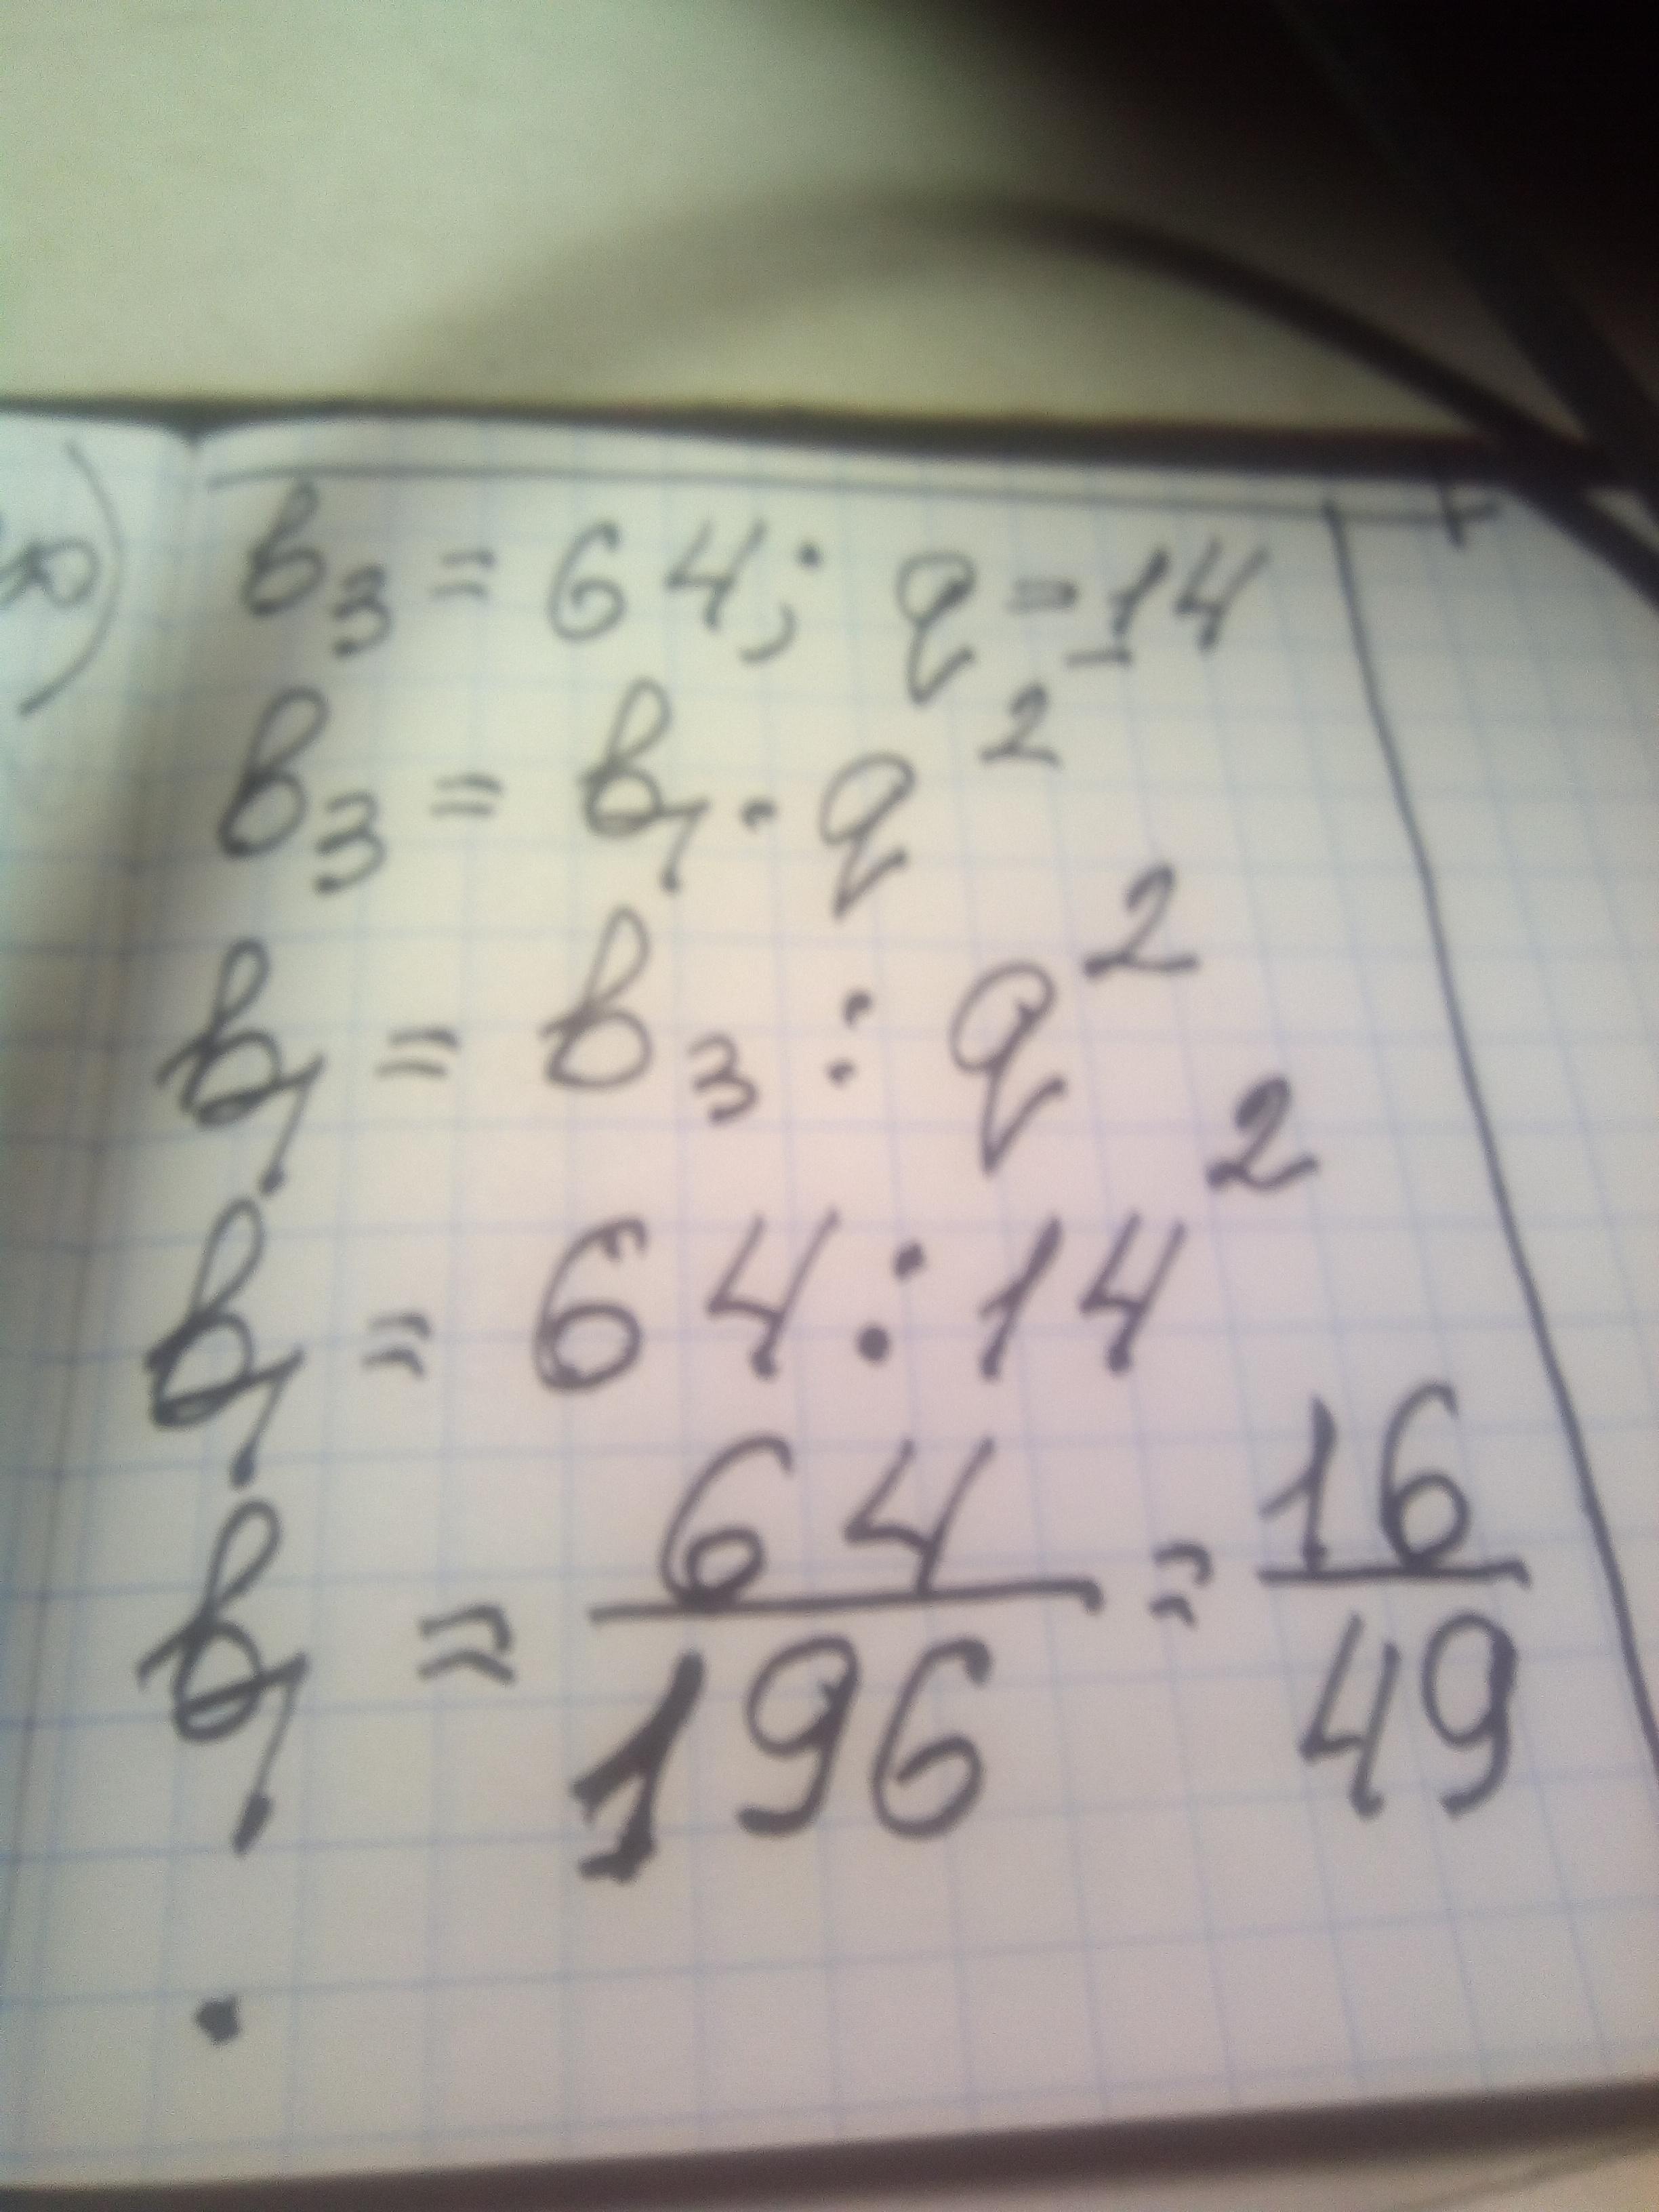 b₃ = 64; q = 14
b₃ = b₁ · q²
b₁ = b₃ : q²
b₁ = 64 : 14²
b₁ = 64/196 = 16/49